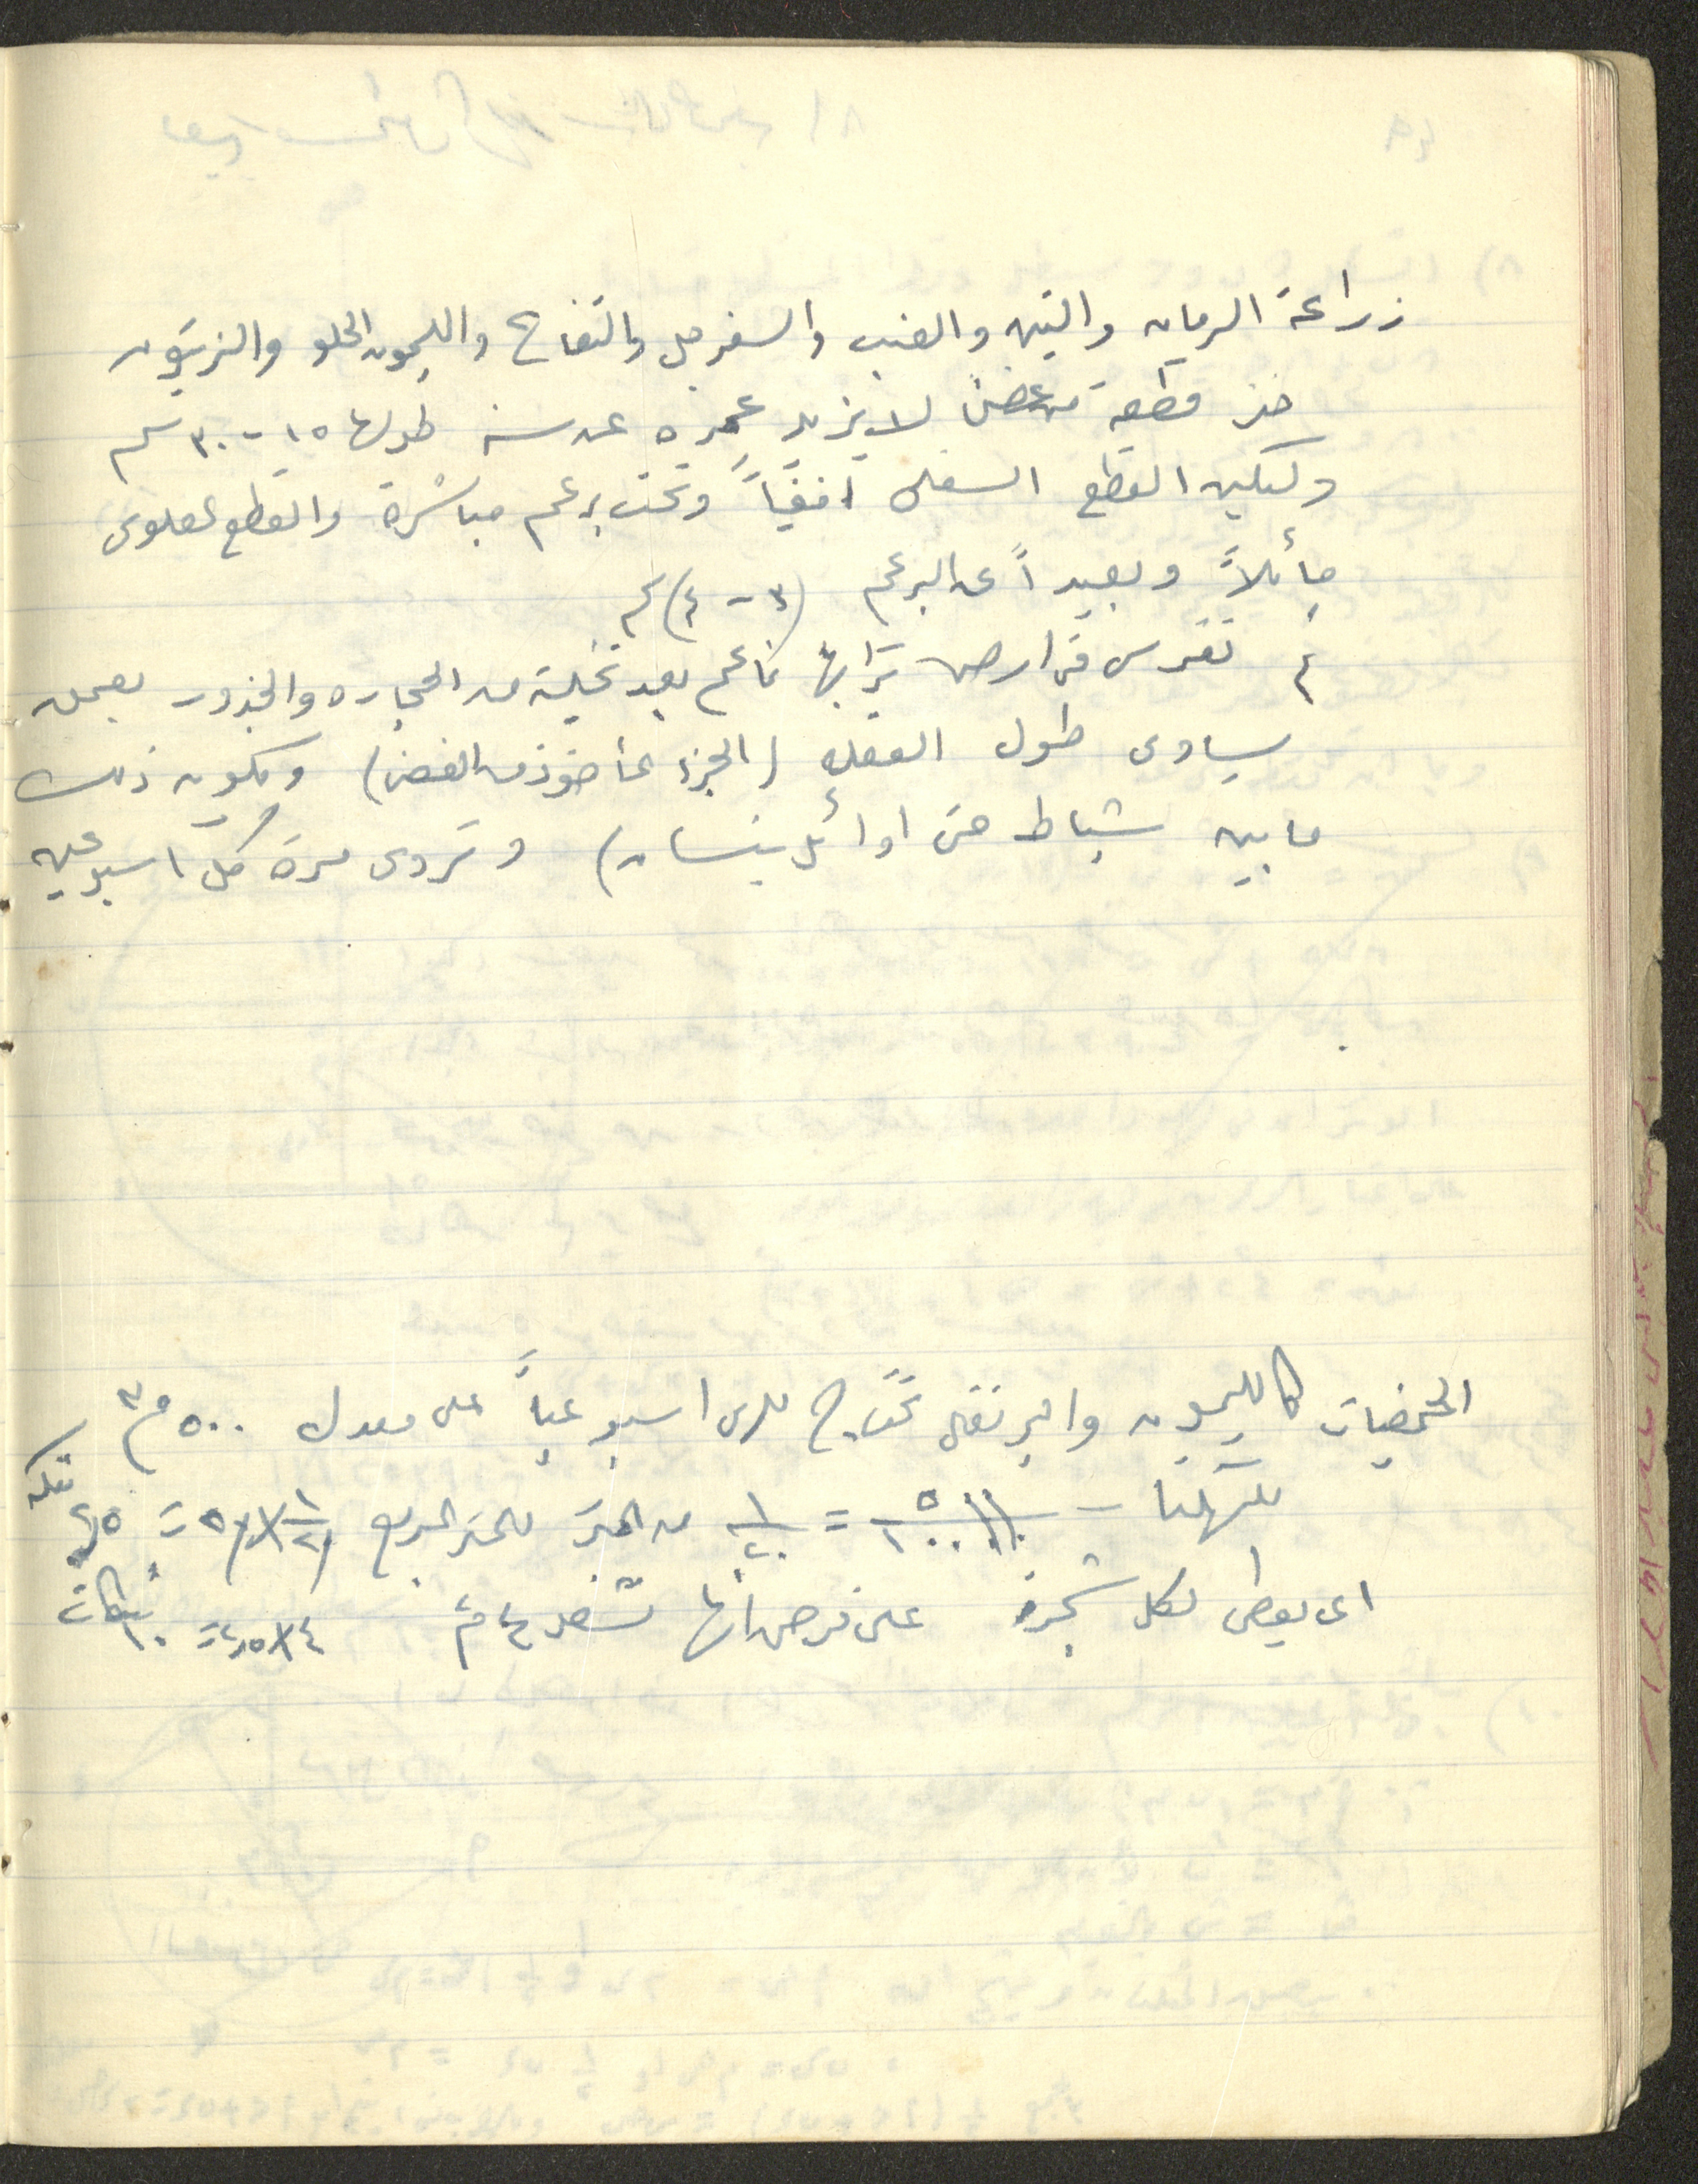 زراعة الرمان والتين والعنب والسفرجل والتفاح والليمون الحلو والزيتون
خذ قطعة من غصن لا يزيد عمره عن سنة طولها ١٥ - ٣٠ سم
وليكن القطع السفلي افقياً وتحت برعم مباشرة والقطع العلوي
مائلاً وبعيداً عن البرعم (٣ - ٤) سم
ثم تغرس في ارض ترابها ناعم بعد تخلية من الحجاره والجذور بعمق
يساوي طول العقله (الجزء المأخوذ من الغصن) ويكون ذلك
ما بين شباط حتى اوائل نيسان) وتروى مرة كل اسبوعين
الحمضيات كالليمون والبرتقال تحتاج للري اسبوعياً على معدل ٥٠٠ م٣
= ١/٢٠ من المتر للمتر المربع = ٢٫٥ تنكه
اى يعطى لكل شجرة على فرض انها تشغل ٤ م٢ ٤ × ٢٫٥ = ١٠ تنكات